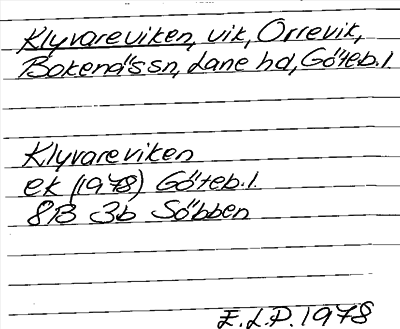 Klyvareviken, vik, Orrevik,
Bokenäs sn, Lane hd, Göteb. l
Klyvareviken
ek (1978) Göteb. l.
8B 3b Söbben
E.L.P. 1978